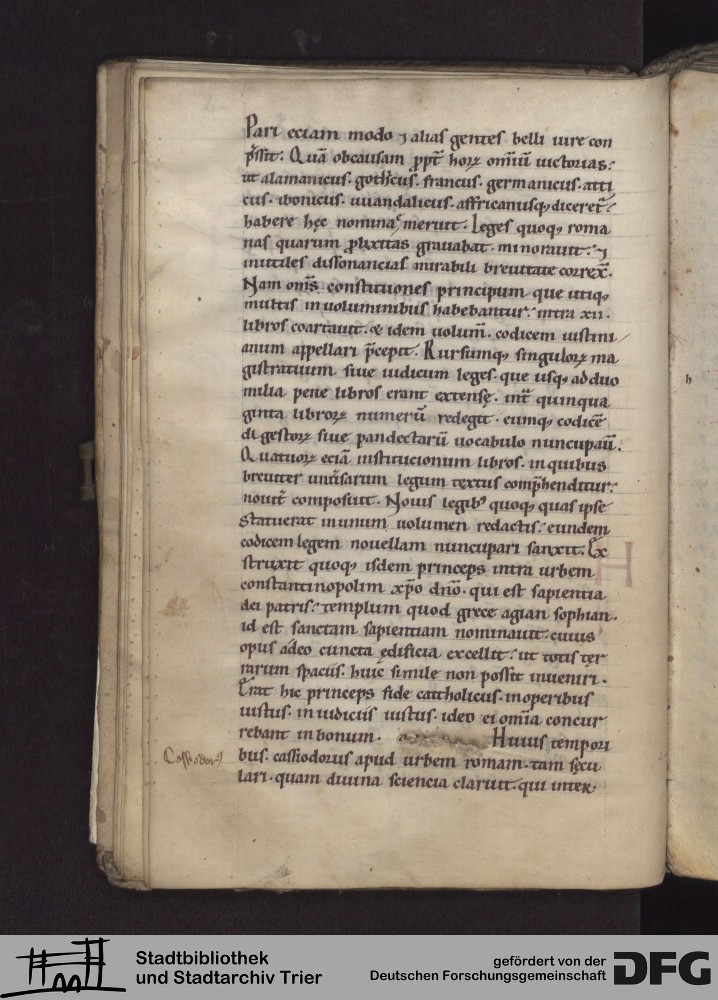 Pari eciam modo ⁊ alias gentes belli iure con
p̃ssit. Quā obcausam ꝓpt̃ horꝝ om̄iū uictorias.
ut alamanicus. gothicus. francus. germanicus. atti
cus. ibonicus. uuandalicus. affricanusq; diceret̃.
habere hęc nomina meruit. Leges quoq; roma
nas quarum ꝓlixitas grauabat. minorauit. ⁊
inutiles dissonancias mirabili breuitate correx̃.
Nam om̄s constitutiones principum que utiq;
multis inuoluminibus habebantur. intra xii.
libros coartauit. & idem uolum̄. codicem iustini
anum appellari p̃cepit. Rursumq; singulorꝝ ma
gistratuum siue iudicum leges. que usq; adduo
milia pene libros erant extensę. int̃ quinqua
ginta librorꝝ numerū redegit. eumq; codicē
digestorꝝ siue pandectarū uocabulo nuncupauit̄.
Quatuorꝝ eciā institucionum libros. inquibus
breuiter uniũsarum legum textus comp̃henditur.
nouit̃ composuit. Nouis legib; quoq; quas ipse
statuerat inunum uolumen redactis. eundem
codicem legem nouellam nuncupari sanxit. Ex
struxit quoq; isdem princeps intra urbem
constantinopolim xp̄o dn̄o. qui est sapientia
dei patris. templum quod grece agian sophian.
id est sanctam sapientiam nominauit. cuius
opus adeo cuncta ędificia excellit. ut totis ter
rarum spaciis. huic simile non possit inueniri.
Erat hic princeps fide cattholicus. inoperibus
iustus. in iudiciis iustus. ideo ei om̄ia concur
rebant inbonum. Huius tempori
bus. cassiodorus apud urbem romam. tam sęcu
lari. quam diuina sciencia claruit. qui inter
Cassiodorus
H
h
Stadtbibliothek
und Stadtarchiv Trier
gefördert von der
Deutschen Forschungsgemeinschaft
DFG